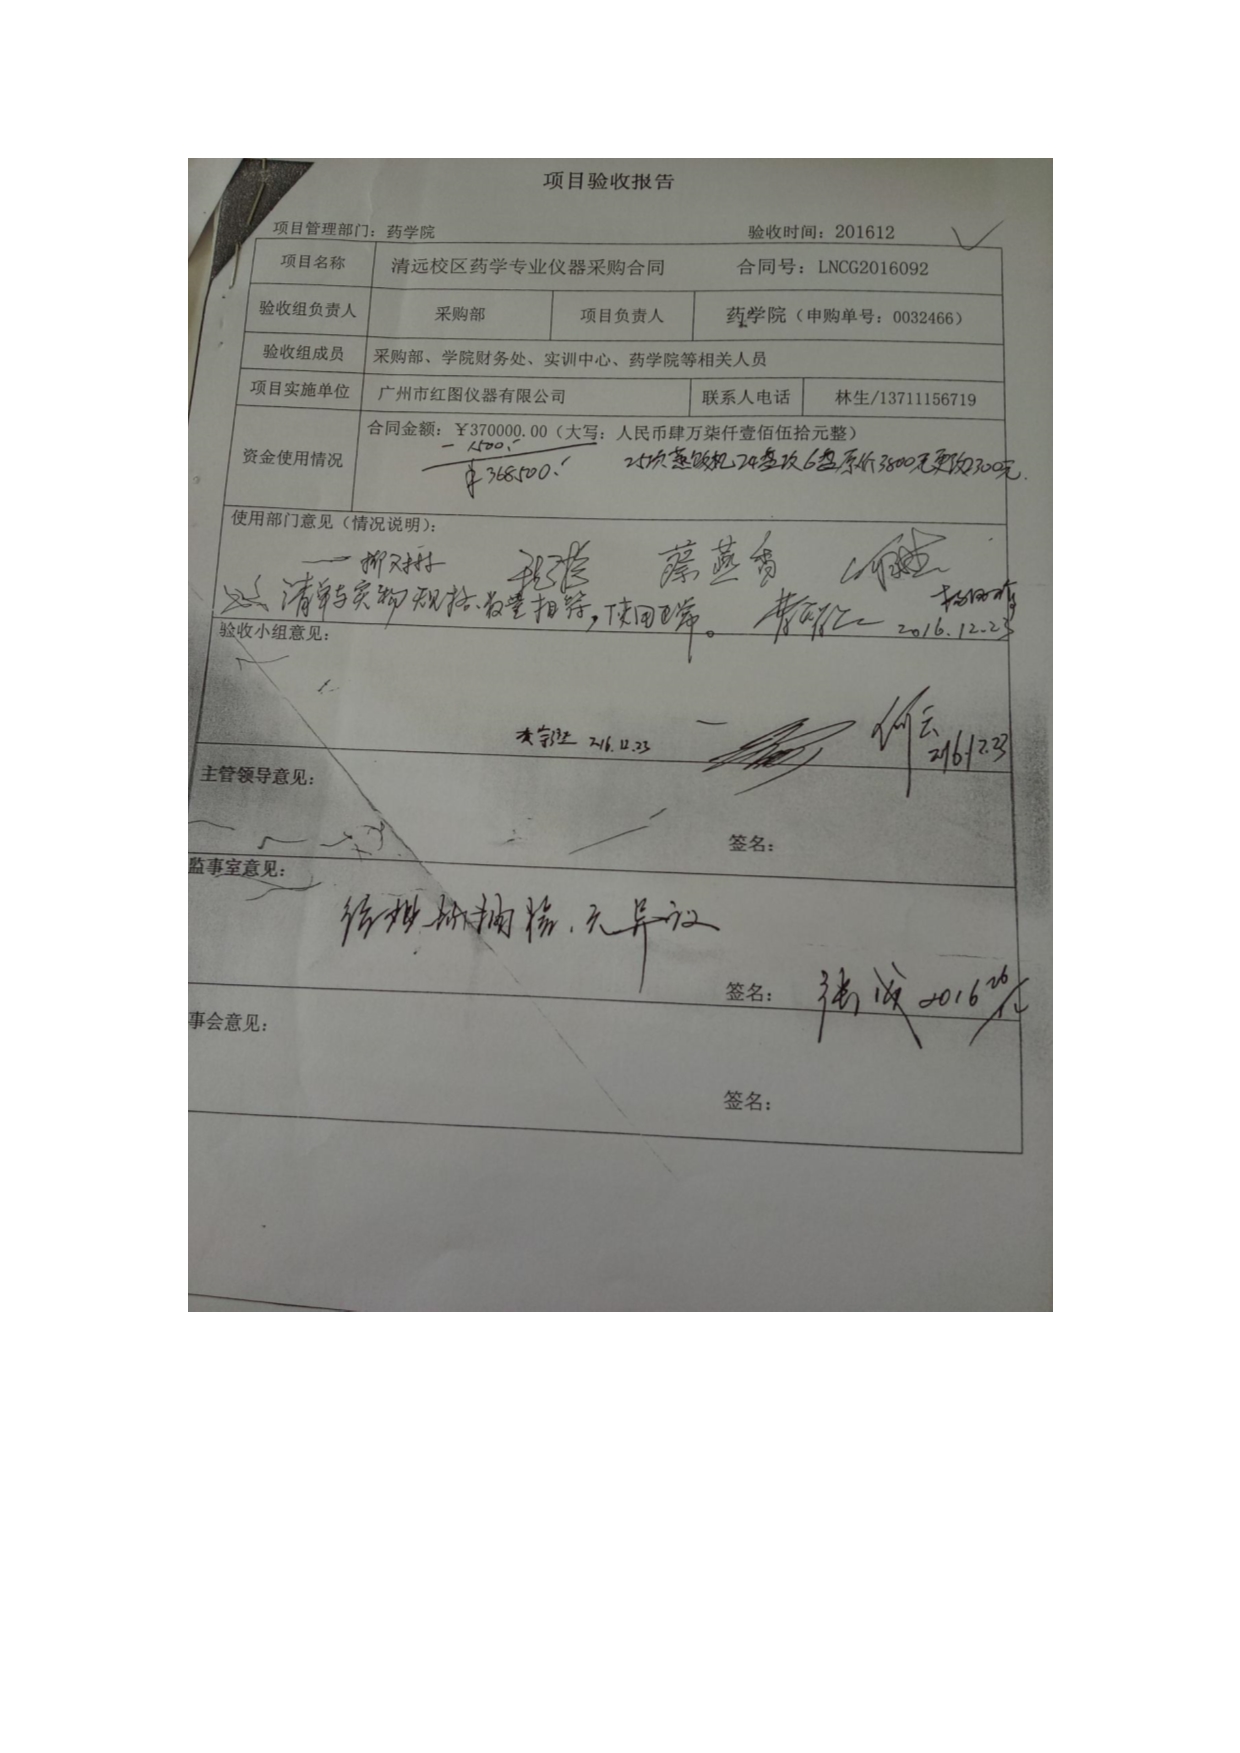 项目验收报告
项目管理部门：药学院 验收时间：201612
项目名称 清远校区药学专业仪器采购合同 合同号：LNCG2016092
验收组负责人 采购部 项目负责人 药学院（申购单号：0032466）
验收组成员 采购部、学院财务处、实训中心、药学院等相关人员
项目实施单位 广州市红图仪器有限公司 联系人电话 林生/13711156719
资金使用情况 合同金额：￥370000.00（大写：人民币肆万柒仟壹佰伍拾元整）
- 1500.-
￥368500.-
25项蒸饭机24盘改6盘原价3800元更改2300元.
使用部门意见（情况说明）：
蔡燕香
清单与实物规格、数量相符，使用正常。
2016.12.23
验收小组意见：
2016.12.23
何云
2016.12.23
主管领导意见：
签名：
监事室意见：
抽检、无异议
签名： 张成 2016 26/12
事会意见：
签名：